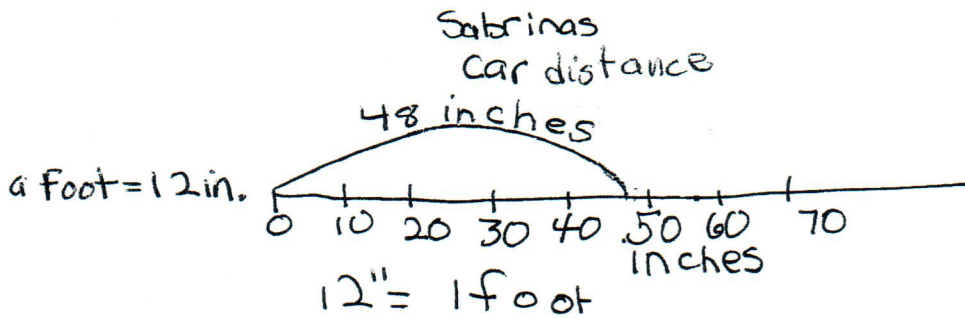 Sabrinas
Car distance
48 inches
a Foot=12in.
0 10 20 30 40 50 60 70
inches
12"= 1foot